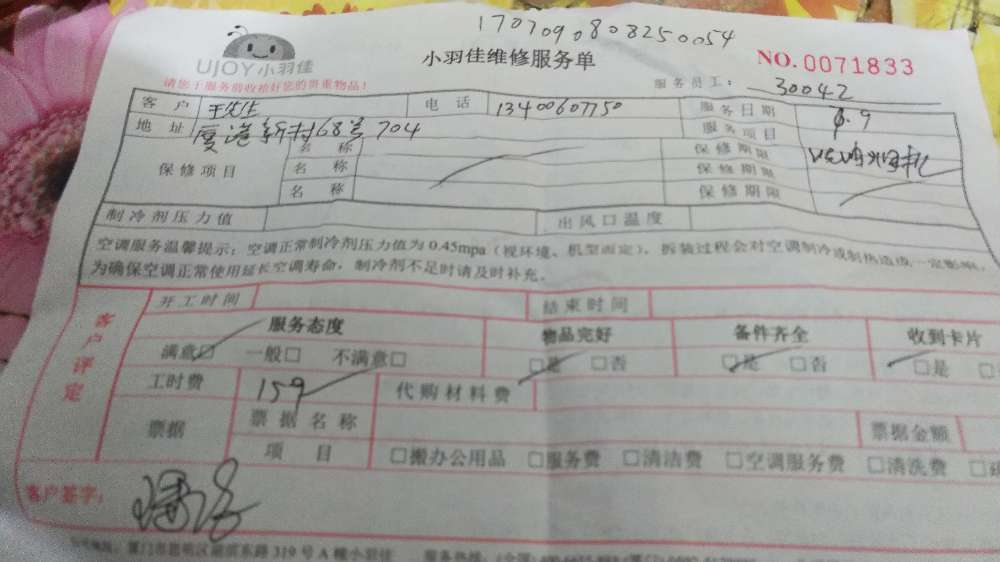 1707090808250054
UJOY小羽佳
小羽佳维修服务单
NO.0071833
请您于服务前收检好您的贵重物品!
服务员工: 30042
客 户 王先生 电 话 13400607750 服务日期 7.9
地 址 厦港新村68号704 服务项目
保修项目
名 称 保修期限
名 称 保修期限
名 称 保修期限
制冷剂压力值 出风口温度
空调服务温馨提示:空调正常制冷剂压力值为0.45mpa(视环境、机型而定),拆装过程会对空调制冷或制热造成一定影响,
为确保空调正常使用延长空调寿命,制冷剂不足时请及时补充。
客户评定
开工时间 结束时间
服务态度 物品完好 备件齐全 收到卡片
满意□ 一般□ 不满意□ □是 □否 □是 □否 □是 □
工时费 159 代购材料费
票据 票据名称 票据金额
项 目 □搬办公用品 □服务费 □清洁费 □空调服务费 □清洗费
客户签字:
厦门市思明区湖滨东路319号A幢小羽佳 服务热线: